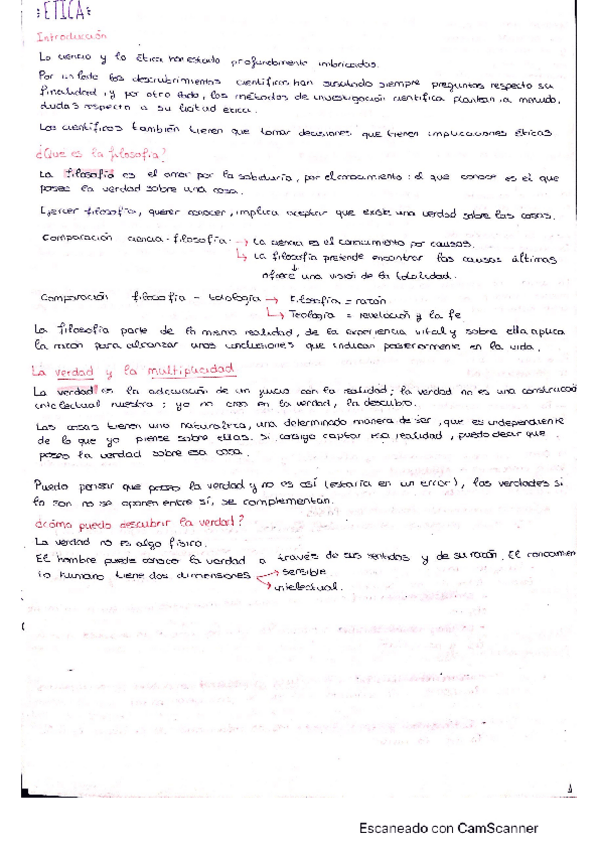 : ETICA:
Introducción
La ciencia y la ética han estado profundamente imbricadas.
Por un lado los descubrimientos científicos han suscitado siempre preguntas respecto su
finalidad, y por otro lado, los métodos de investigación científica plantean a menudo,
dudas respecto a su licitud ética.
Los científicos también tienen que tomar decisiones que tienen implicaciones éticas
¿Que es la filosofía?
La filosofía es el amor por la sabiduría, por el conocimiento: el que conoce es el que
posee la verdad sobre una cosa.
Ejercer filosofía, querer conocer, implica aceptar que existe una verdad sobre las cosas.
Comparación ciencia - filosofía → La ciencia es el conocimiento por causas.
↳ La filosofía pretende encontrar las causas últimas
↓
ofrece una visión de la totalidad.
Comparación filosofía - teología → Filosofía = razón
↳ Teología = revelación y la fe
La filosofía parte de la misma realidad, de la experiencia vital y sobre ella aplica
la razón para alcanzar unas conclusiones que indican posteriormente en la vida.
La verdad y la multiplicidad
La verdad es la adecuación de un juicio con la realidad; la verdad no es una construcció
intelectual nuestra; yo no creo en la verdad, la descubro.
Las cosas tienen una naturaleza, una determinada manera de ser, que es independiente
de lo que yo piense sobre ellas. Si consigo captar esa realidad, puedo decir que
poseo la verdad sobre esa cosa.
Puedo pensar que poseo la verdad y no es así (estaría en un error), las verdades si
lo son no se oponen entre sí, se complementan.
¿cómo puedo descubrir la verdad?
La verdad no es algo físico.
El hombre puede conocer la verdad a través de sus sentidos y de su razón. El conocimien
to humano tiene dos dimensiones → sensible.
→ intelectual.
1
Escaneado con CamScanner